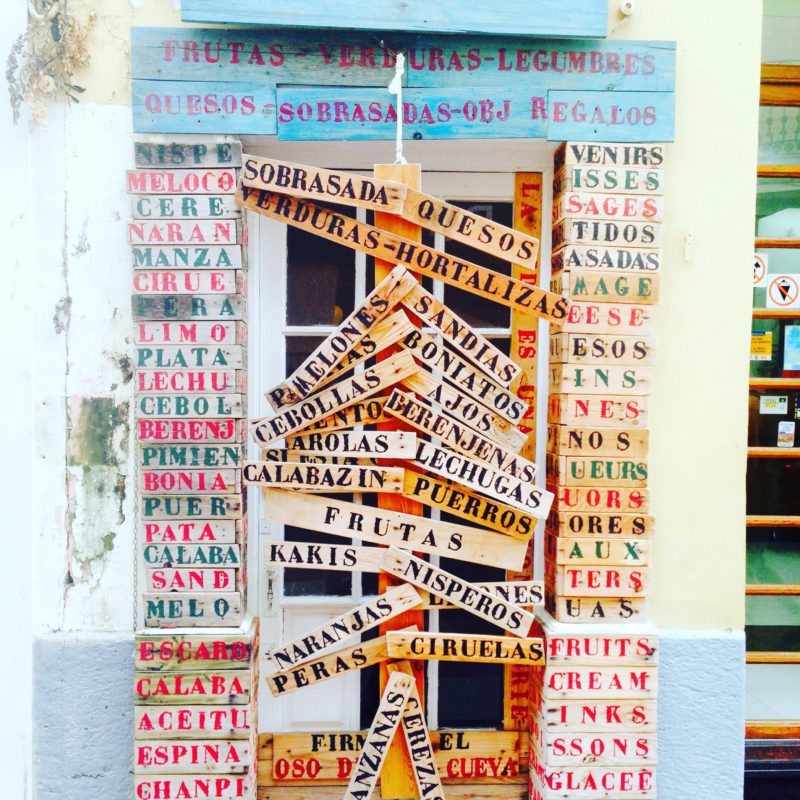 FRUTAS - VERDURAS - LEGUMBRES
QUESOS - SOBRASADAS - OBJ REGALOS
NISPE
MELOCO
CERE
NARAN
MANZA
CIRUE
PERA
LIMO
PLATA
LECHU
CEBOL
BERENJ
PIMIEN
BONIA
PUER
PATA
CALABA
SAND
MELO
ESCARO
CALABA
ACEITU
ESPINA
CHANPI
SOBRASADA
QUESOS
VERDURAS-HORTALIZAS
MELONES
SANDIAS
BONIATOS
CEBOLLAS
AJOS
BERENJENAS
LECHUGAS
CALABAZIN
PUERROS
FRUTAS
KAKIS
NISPEROS
NARANJAS
CIRUELAS
PERAS
MANZANAS
CEREZAS
OSO
CUEVA
VENIRS
ISSES
SAGES
TIDOS
ASADAS
MAGE
EESE
ESOS
INS
NES
NOS
UEURS
UORS
ORES
AUX
TERS
UAS
FRUITS
CREAM
INKS
SSONS
GLACEÉ